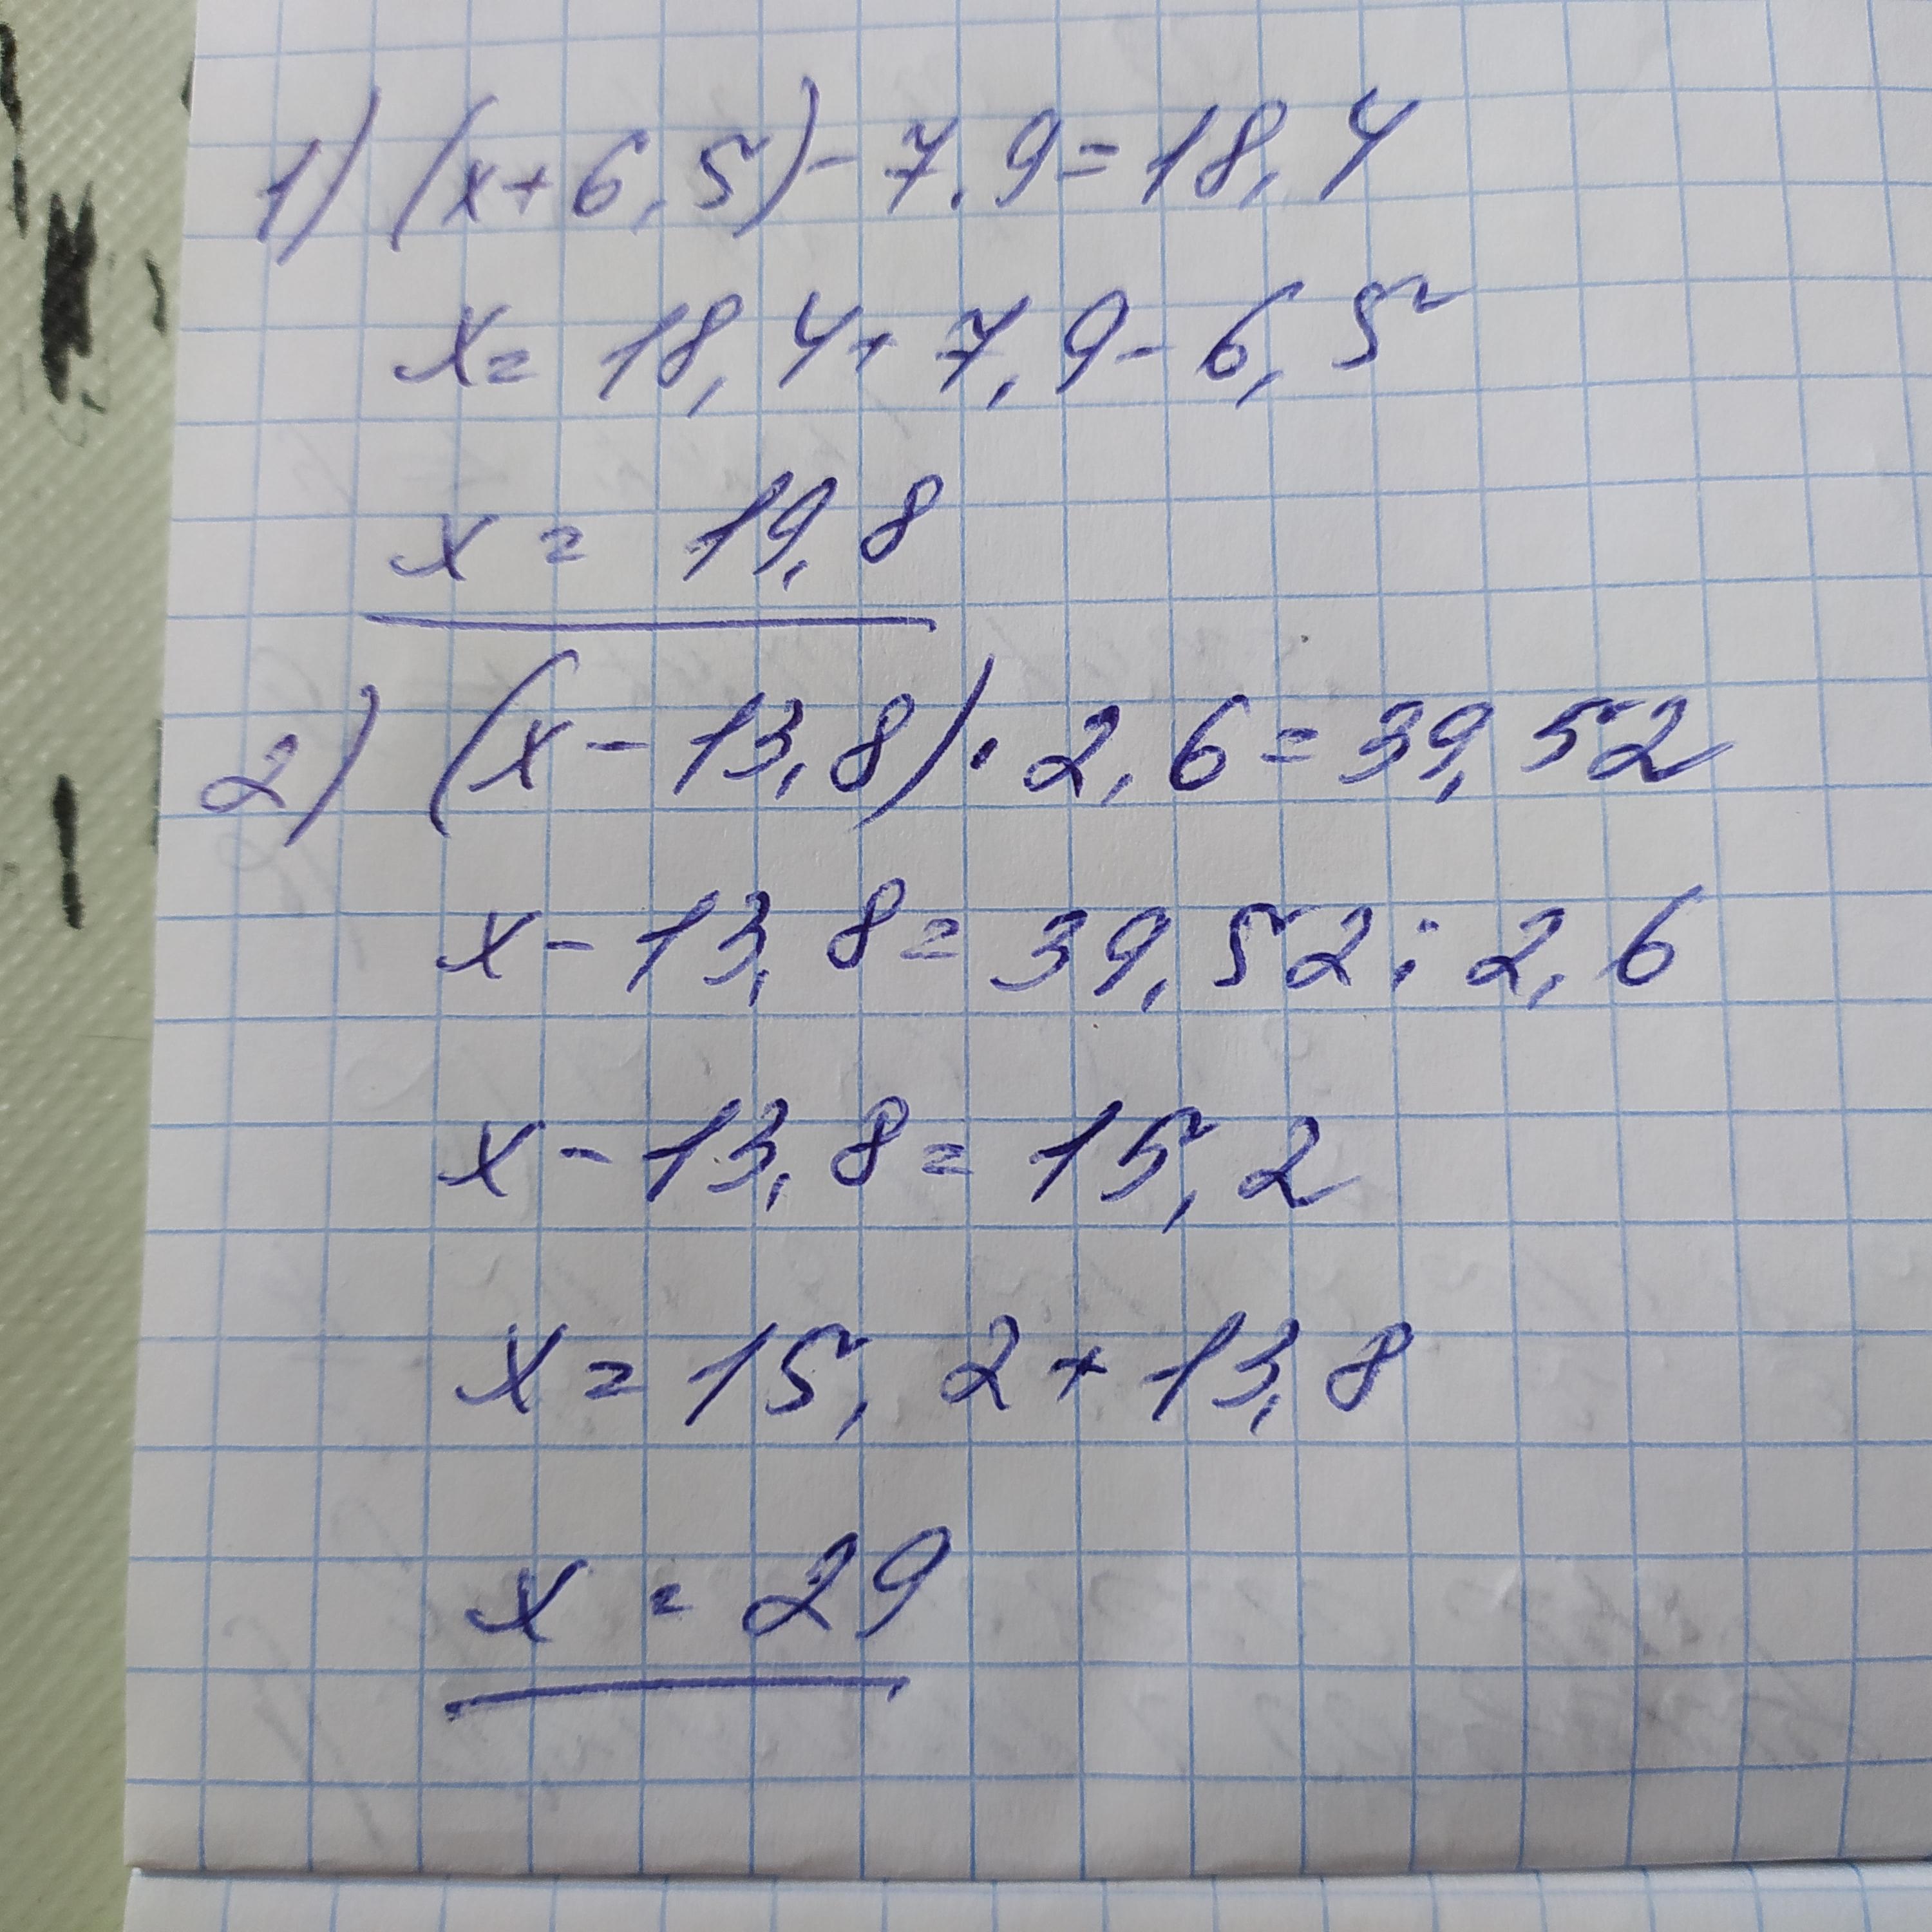 1) (x+6,5)-7.9=18,4
x=18,4+7,9-6,5
x=19,8
2) (x-13,8)·2,6=39,52
x-13,8=39,52:2,6
x-13,8=15,2
x=15,2+13,8
x=29